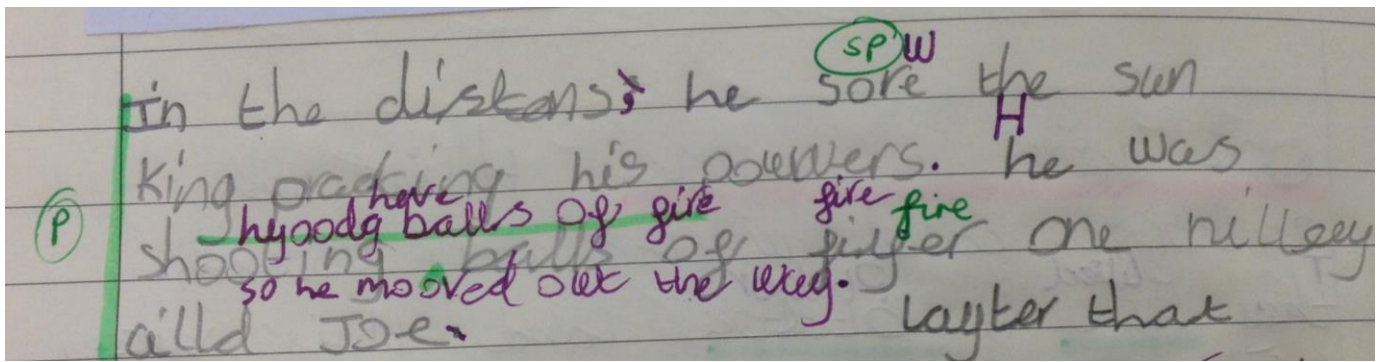 sp w
In the distans, he sore the sun
H
king pracking his pouwers. he was
have
P hyoodg balls of fire fire fire
shooting balls of fiyer one nilleey
so he mooved out the way.
cilld Joe. Layter that